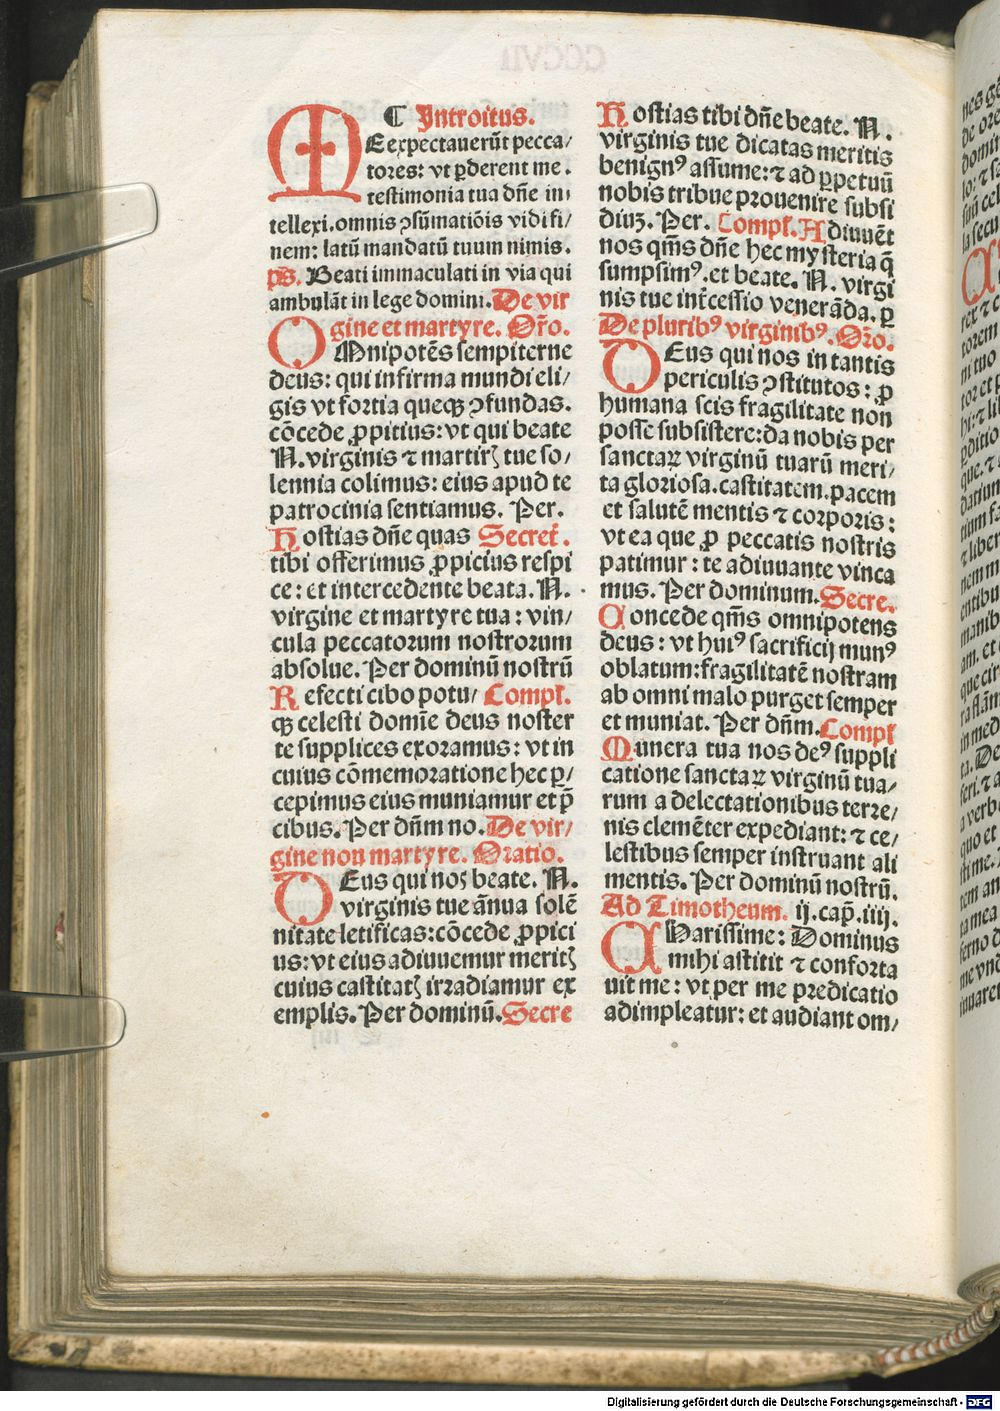 ¶ Introitus.
MEexpectauerūt pecca/
tores: vt ꝑderent me.
testimonia tua dñe in/
tellexi.omnis ꝯsūmatiōis vidi fi/
nem: latū mandatū tuum nimis.
ps. Beati immaculati in via qui
ambulāt in lege domini. De vir
gine et martyre. Or̄o.
OMnipotēs sempiterne
deus: qui infirma mundi eli/
gis vt fortia queqꝫ ꝯfundas.
cōcede ꝓpitius: vt qui beate
N. virginis ⁊ martirꝭ tue so/
lennia colimus: eius apud te
patrocinia sentiamus. Per.
Hostias dñe quas Secret̄.
tibi offerimus ꝓpicius respi
ce: et intercedente beata. N.
virgine et martyre tua: vin/
cula peccatorum nostrorum
absolue. Per dominū nostrū
Refecti cibo potu/ Compl̄.
qꝫ celesti domīe deus noster
te supplices exoramus: vt in
cuius cōmemoratione hec ꝑ/
cepimus eius muniamur et p̄
cibus. Per dn̄m no. De vir/
gine non martyre. Oratio.
DEus qui nos beate. N.
virginis tue ānua solē
nitate letificas: cōcede ꝓpici
us: vt eius adiuuemur meritꝭ
cuius castitatꝭ irradiamur ex
emplis. Per dominū. Secre
Hostias tibi dñe beate. N.
virginis tue dicatas meritis
benignꝰ assume: ⁊ ad ꝑpetuū
nobis tribue prouenire subsi
diuꝫ. Per. Compl̄. Adiuuēt
nos qm̄s dñe hec mysteria q̄
sumpsimꝰ. et beate. N. virgi
nis tue int̄cessio venerāda. ꝑ
De pluribꝰ virginibꝰ. Or̄o.
DEus qui nos in tantis
periculis ꝯstitutos: ꝓ
humana scis fragilitate non
posse subsistere: da nobis per
sanctaꝝ virginū tuarū meri/
ta gloriosa. castitatem. pacem
et salutē mentis ⁊ corporis:
vt ea que ꝓ peccatis nostris
patimur: te adiuuante vinca
mus. Per dominum. Secre.
Concede qm̄s omnipotens
deus: vt huiꝰ sacrificij munꝰ
oblatum: fragilitatē nostram
ab omni malo purget semper
et muniat. Per dn̄m. Compl̄
Munera tua nos deꝰ suppli
catione sanctaꝝ virginū tua/
rum a delectationibus terre/
nis clemēter expediant: ⁊ ce/
lestibus semper instruant ali
mentis. Per dominū nostrū.
Ad Timotheum. ij. cap̄. iiij.
CHarissime: Dominus
mihi astitit ⁊ conforta
uit me: vt per me predicatio
adimpleatur: et audiant om/
Digitalisierung gefördert durch die Deutsche Forschungsgemeinschaft - DFG